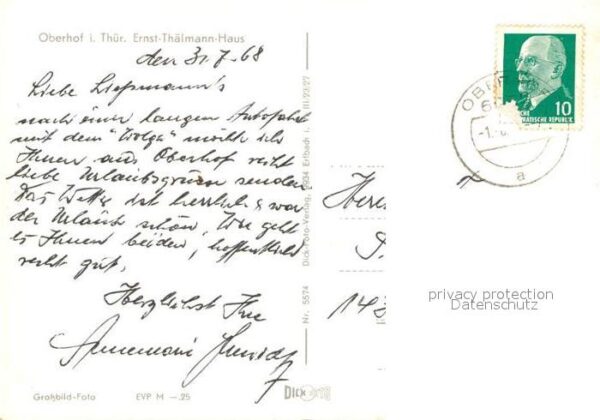 Oberhof i. Thür. Ernst-Thälmann-Haus
den 31.7.68
Liebe
nach einer langen Autofahrt
mit dem "Wolga" möcht ich
Ihnen aus Oberhof recht
liebe Urlaubsgrüsse senden
Das Wetter ist herrlich &
der Urlaub schön, Wie geht
es Ihnen beiden, hoffentlich
recht gut,
Herzlichst Ihre
Annemarie
Großbild-Foto EVP M —.25
Dick-Foto-Verlag, Erlbach i. V. III/23/27
Nr. 5574
DICK
OBER
10
DEUTSCHE DEMOKRATISCHE REPUBLIK
a
privacy protection
Datenschutz